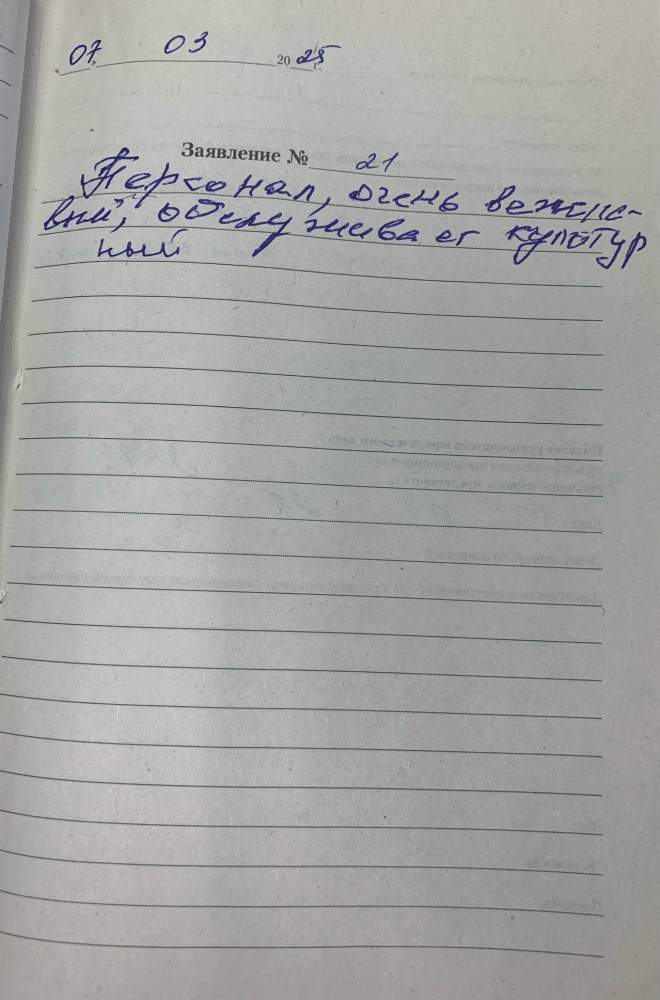 07 03 2025 г.
Заявление № 21
Персонал, очень вежли-
вый, обслуживает культур
ный